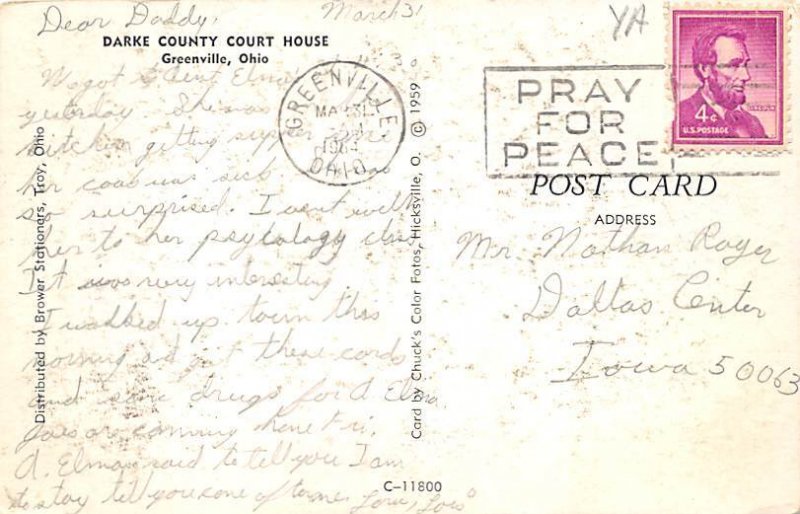 Dear Daddy,
March 31
YA
DARKE COUNTY COURT HOUSE
Greenville, Ohio
GREENVILLE
MAR 31
1964
OHIO
PRAY
FOR
PEACE
4¢
U.S. POSTAGE
POST CARD
ADDRESS
Mr. Nathan Royer
Dallas Center
Iowa 50063
We got Aunt Elma
yesterday She was
kitchen getting supper
her coat was sick
so surprised. I went with
her to her psytology class
It was very interesting.
I walked up town this
morning and got these cards
and some drugs for A. Elma
are comming here Fri.
A. Elma said to tell you I am
to stay tell you come Love, Lois
Distributed by Brower Stationers, Troy, Ohio
Card by Chuck's Color Fotos, Hicksville, O. © 1959
C-11800